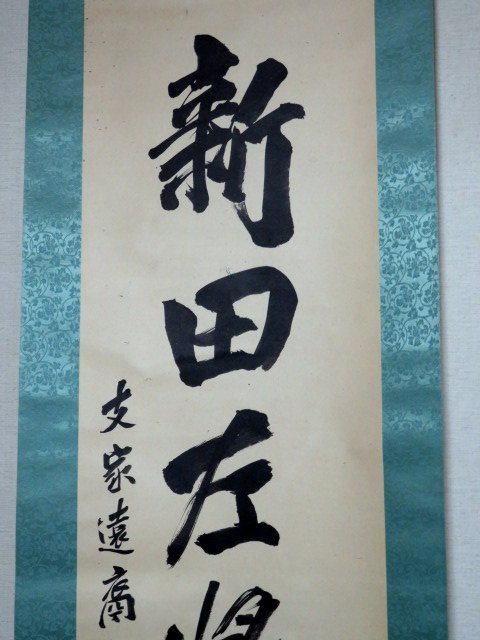 新田左将
支家遠裔